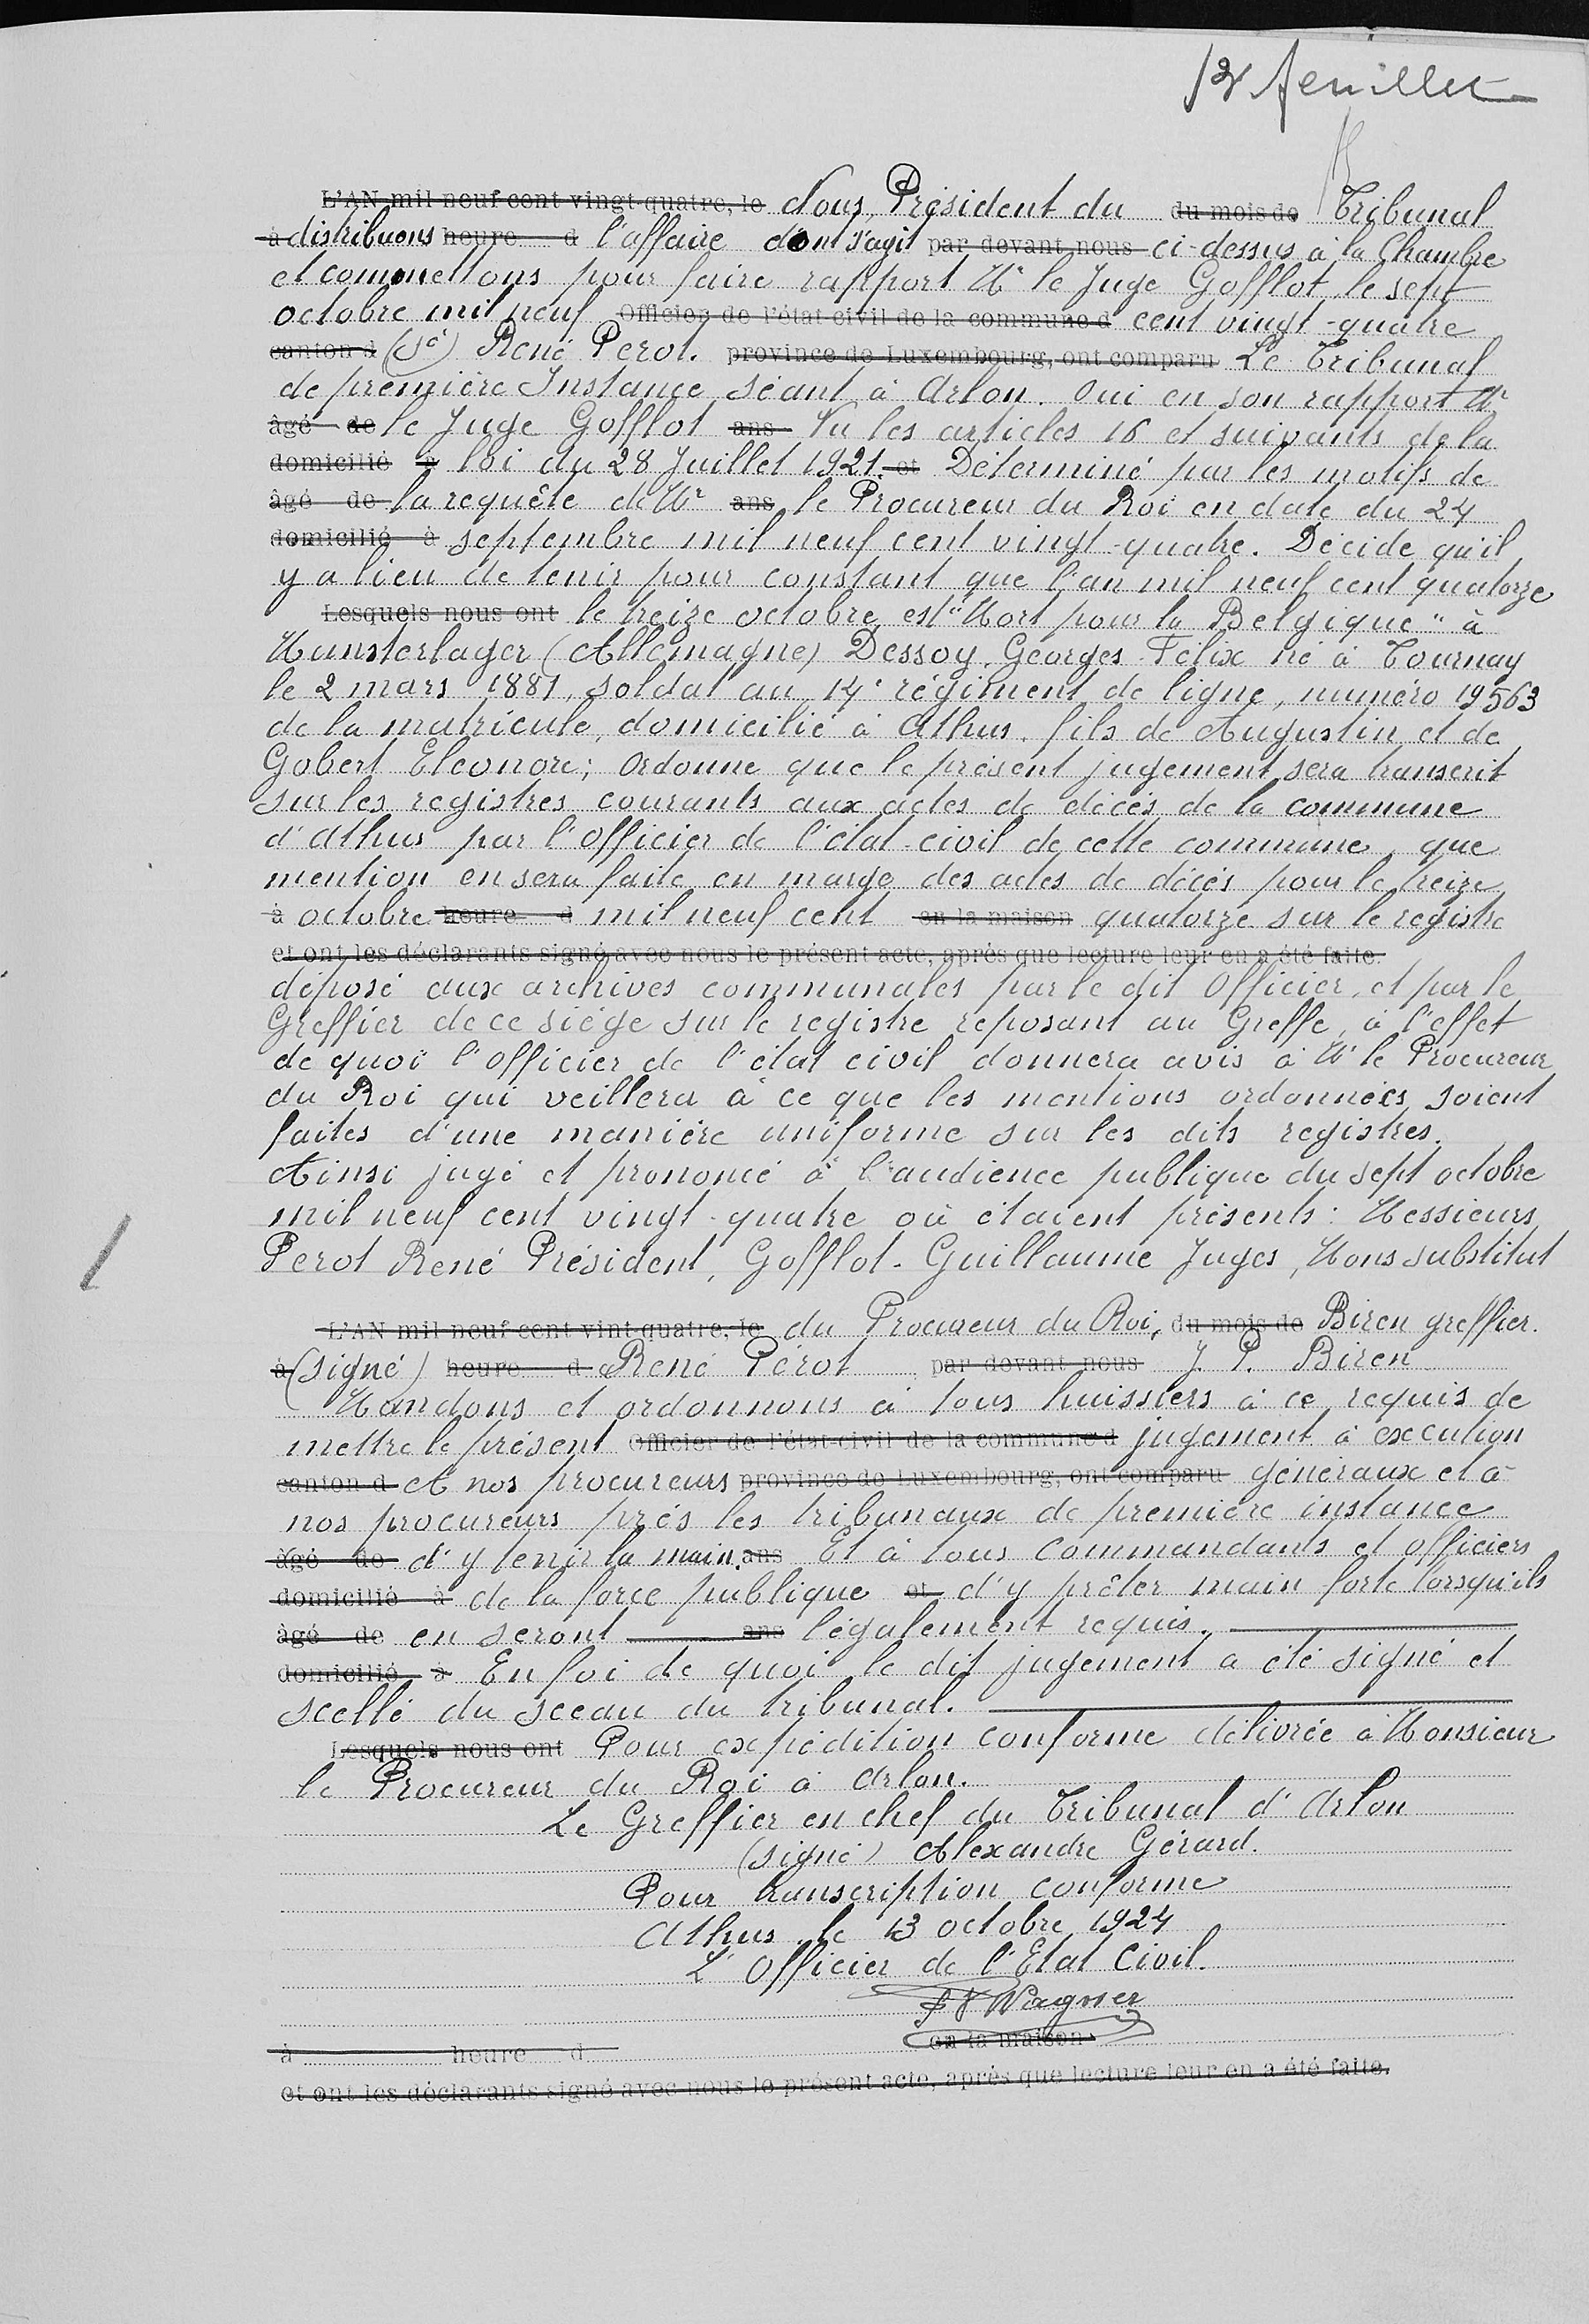 12 feuillet
L'AN mil neuf cent vingt-quatre, le Nous, Président du du mois de Tribunal
à distribuons heure d l'affaire dont s'agit par devant nous ci-dessus à la Chambre
et commettons pour faire rapport Mr le Juge Gofflot, le sept
octobre mil neuf Officier de l'état civil de la commune d cent vingt-quatre
canton d (sé) René Perot. province de Luxembourg, ont comparu Le Tribunal
de première Instance séant à Arlon. Oui en son rapport Mr
âgé de le Juge Gofflot ans Vu les articles 16 et suivants de la
domicilié à loi du 28 Juillet 1921. et Déterminé par les motifs de
âgé de la requête de Mr ans le Procureur du Roi en date du 24
domicilié à septembre mil neuf cent vingt-quatre. Décide qu'il
y a lieu de tenir pour constant que l'an mil neuf cent quatorze
Lesquels nous ont le treize octobre est "Mort pour la Belgique" à
Munsterlager (Allemagne) Dessoy, Georges-Félix né à Tournay
le 2 mars 1881, soldat au 14e régiment de ligne, numéro 19563
de la matricule, domicilié à Athus. fils de Augustin et de
Gobert Eleonore; Ordonne que le présent jugement sera transcrit
sur les registres courants aux actes de décès de la commune
d'Athus par l'Officier de l'état-civil de cette commune, que
mention en sera faite en marge des actes de décès pour le treize
à octobre heure d mil neuf cent en la maison quatorze sur le registre
et ont les déclarants signé avec nous le présent acte, après que lecture leur en a été faite.
déposé aux archives communales par le dit Officier, et par le
Greffier de ce siège sur le registre reposant au Greffe, à l'effet
de quoi l'officier de l'état civil donnera avis à Mr le Procureur
du Roi qui veillera à ce que les mentions ordonnées soient
faites d'une manière uniforme sur les dits registres.
Ainsi jugé et prononcé à l'audience publique du sept octobre
mil neuf cent vingt-quatre où étaient présents: Messieurs
Perot René Président, Gofflot-Guillaume Juges, Mons substitut
L'AN mil neuf cent vint-quatre, le du Procureur du Roi, du mois de Biren greffier.
à (signé) heure d René Pérot par devant nous J. P. Biren
Mandons et ordonnons à tous huissiers à ce requis de
mettre le présent Officier de l'état-civil de la commune d jugement à exécution
canton d et nos procureurs province de Luxembourg, ont comparu généraux et à
nos procureurs près les tribunaux de première instance
âgé de d'y tenir la main. ans Et à tous commandants et officiers
domicilié à de la force publique et d'y prêter main forte lorsqu'ils
âgé de en seront ans légalement requis.
domicilié à En foi de quoi le dit jugement a été signé et
scellé du sceau du tribunal.
Lesquels nous ont Pour expédition conforme délivrée à Monsieur
le Procureur du Roi à Arlon.
Le Greffier en chef du Tribunal d'Arlon
(signé) Alexandre Gérard.
Pour transcription conforme
Athus le 13 octobre 1924
L'Officier de l'Etat Civil.
Wagner
en la maison
à heure d
et ont les déclarants signé avec nous le présent acte, après que lecture leur en a été faite.